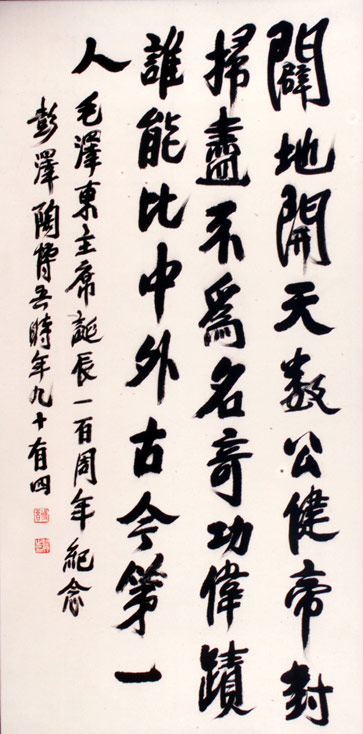 闢地開天數公健帝封
掃盡不為名奇功偉蹟
誰能比中外古今第一
人
毛澤東主席誕辰一百周年紀念
彭澤陶博吾時年九十有四